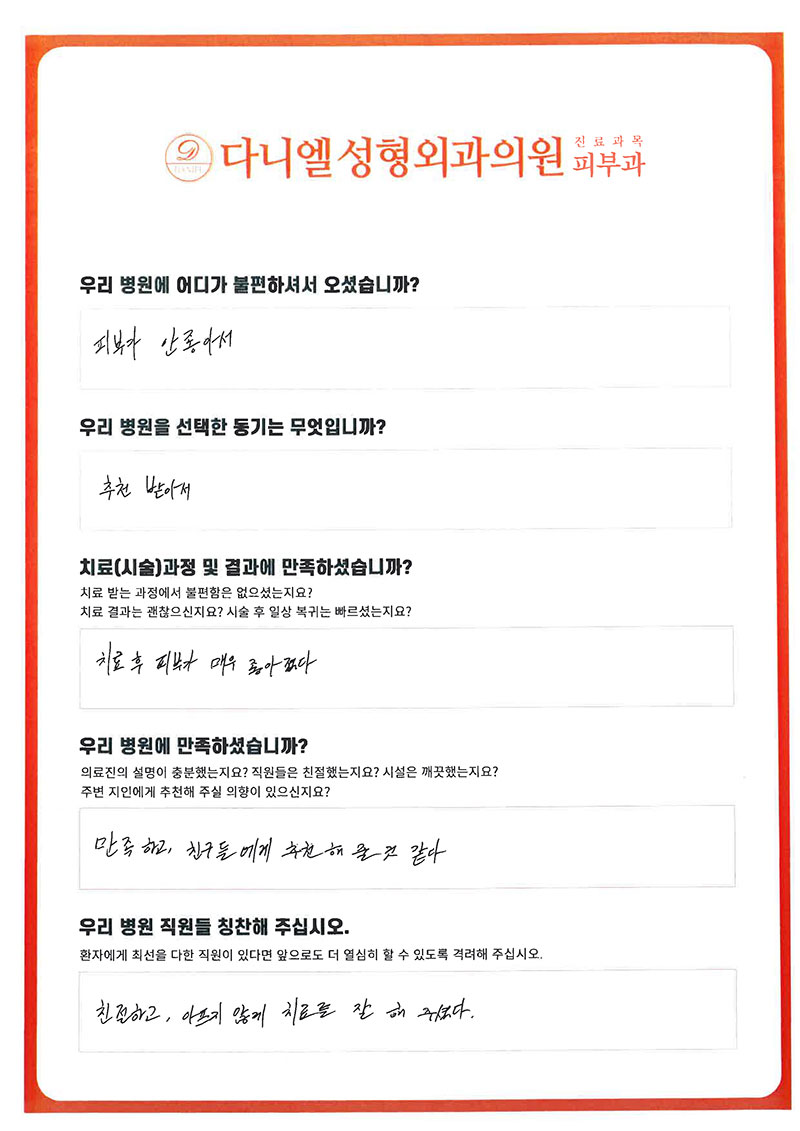 다니엘성형외과의원 진료과목 피부과
우리 병원에 어디가 불편하셔서 오셨습니까?
피부가 안좋아서
우리 병원을 선택한 동기는 무엇입니까?
추천 받아서
치료(시술)과정 및 결과에 만족하셨습니까?
치료 받는 과정에서 불편함은 없으셨는지요?
치료 결과는 괜찮으신지요? 시술 후 일상 복귀는 빠르셨는지요?
치료 후 피부가 매우 좋아졌다
우리 병원에 만족하셨습니까?
의료진의 설명이 충분했는지요? 직원들은 친절했는지요? 시설은 깨끗했는지요?
주변 지인에게 추천해 주실 의향이 있으신지요?
만족하고, 친구들에게 추천해 줄 것 같다
우리 병원 직원들 칭찬해 주십시오.
환자에게 최선을 다한 직원이 있다면 앞으로도 더 열심히 할 수 있도록 격려해 주십시오.
친절하고, 아프지 않게 치료를 잘 해 주셨다.